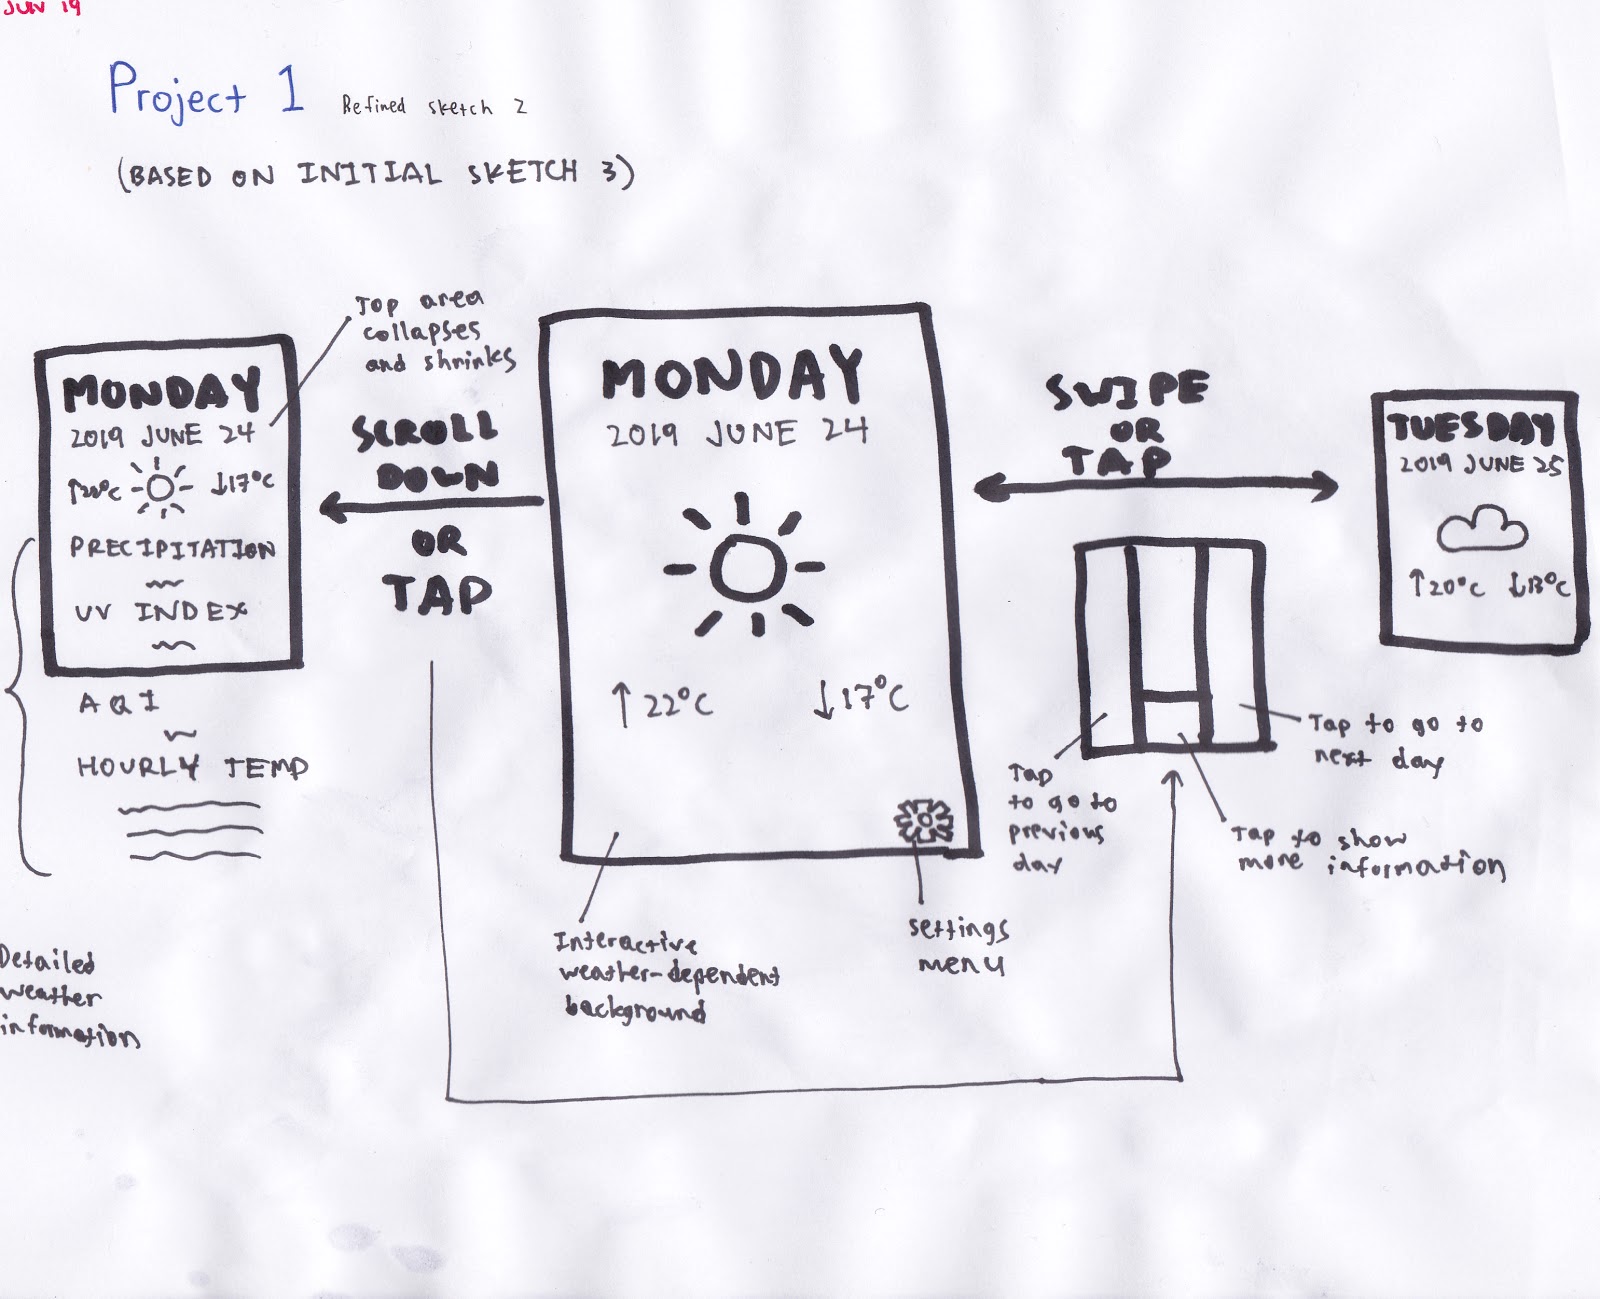 JUN 19
Project 1 Refined sketch 2
(BASED ON INITIAL SKETCH 3)
Top area
collapses
and shrinks
MONDAY
2019 JUNE 24
↑22°C ↓17°C
PRECIPITATION
UV INDEX
AQI
HOURLY TEMP
Detailed
weather
information
SCROLL
DOWN
OR
TAP
MONDAY
2019 JUNE 24
↑22°C ↓17°C
Interactive
weather-dependent
background
settings
menu
SWIPE
OR
TAP
Tap
to go to
previous
day
Tap to show
more information
Tap to go to
next day
TUESDAY
2019 JUNE 25
↑20°C ↓13°C